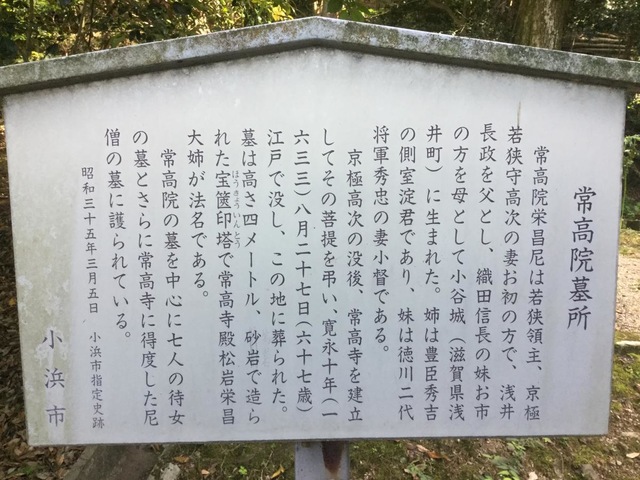 常高院墓所
常高院栄昌尼は若狭領主、京極
若狭守高次の妻お初の方で、浅井
長政を父とし、織田信長の妹お市
の方を母として小谷城（滋賀県浅
井町）に生まれた。姉は豊臣秀吉
の側室淀君であり、妹は徳川二代
将軍秀忠の妻小督である。
京極高次の没後、常高寺を建立
してその菩提を弔い、寛永十年（一
六三三）八月二十七日（六十七歳）
江戸で没し、この地に葬られた。
墓は高さ四メートル、砂岩で造ら
れた宝篋印塔で常高寺殿松岩栄昌
ほうきょういんとう
大姉が法名である。
常高院の墓を中心に七人の待女
の墓とさらに常高寺に得度した尼
僧の墓に護られている。
昭和三十五年三月五日　小浜市指定史跡
小浜市